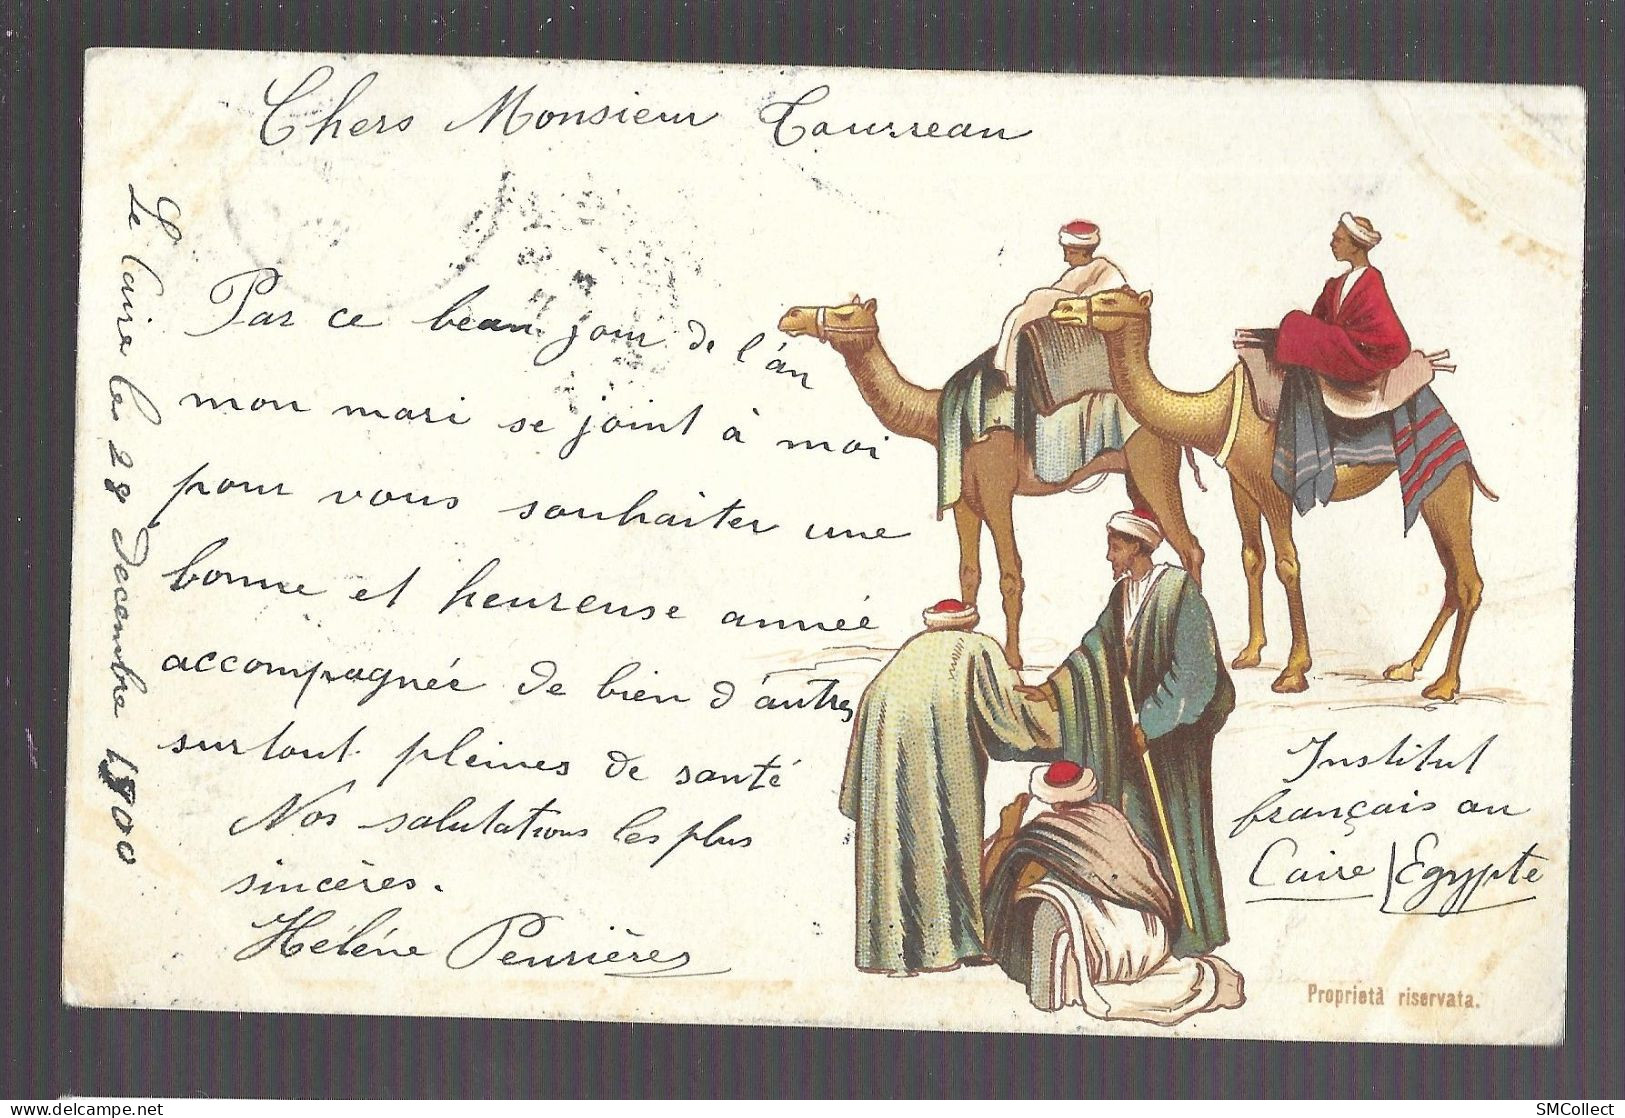 Chers Monsieur Tousseau
Le Caire les 28 decembre 1900
Par ce beau jour de l'an
mon mari se joint à moi
pour vous souhaiter une
bonne et heureuse année
accompagnée de bien d'autres
surtout pleines de santé
Nos salutations les plus
sincères.
Hélène
Institut
français au
Caire Egypte
Proprietà riservata.
© SMCollect